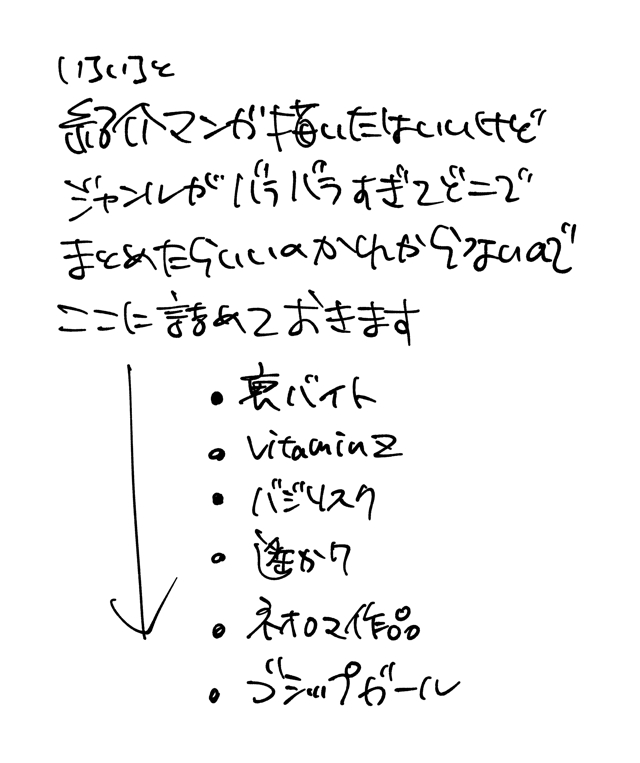 いろいろと
紹介マンガ描いたはいいけど
ジャンルがバラバラすぎてどこで
まとめたらいいのかわからないので
ここに詰めておきます
• 裏バイト
• vitaminZ
• バジリスク
• 遙か7
• ネオロマ作品
• ゴシップガール